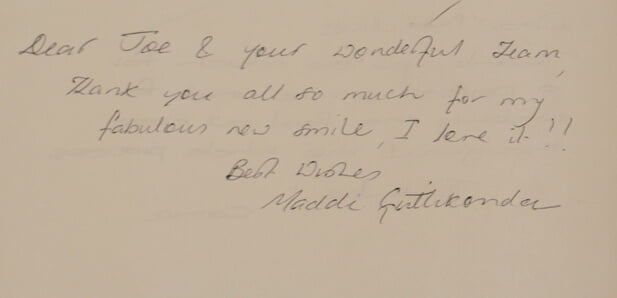 Dear Joe & your wonderful Team,
Thank you all so much for my
fabulous new smile, I love it!!
Best Wishes
Maddi